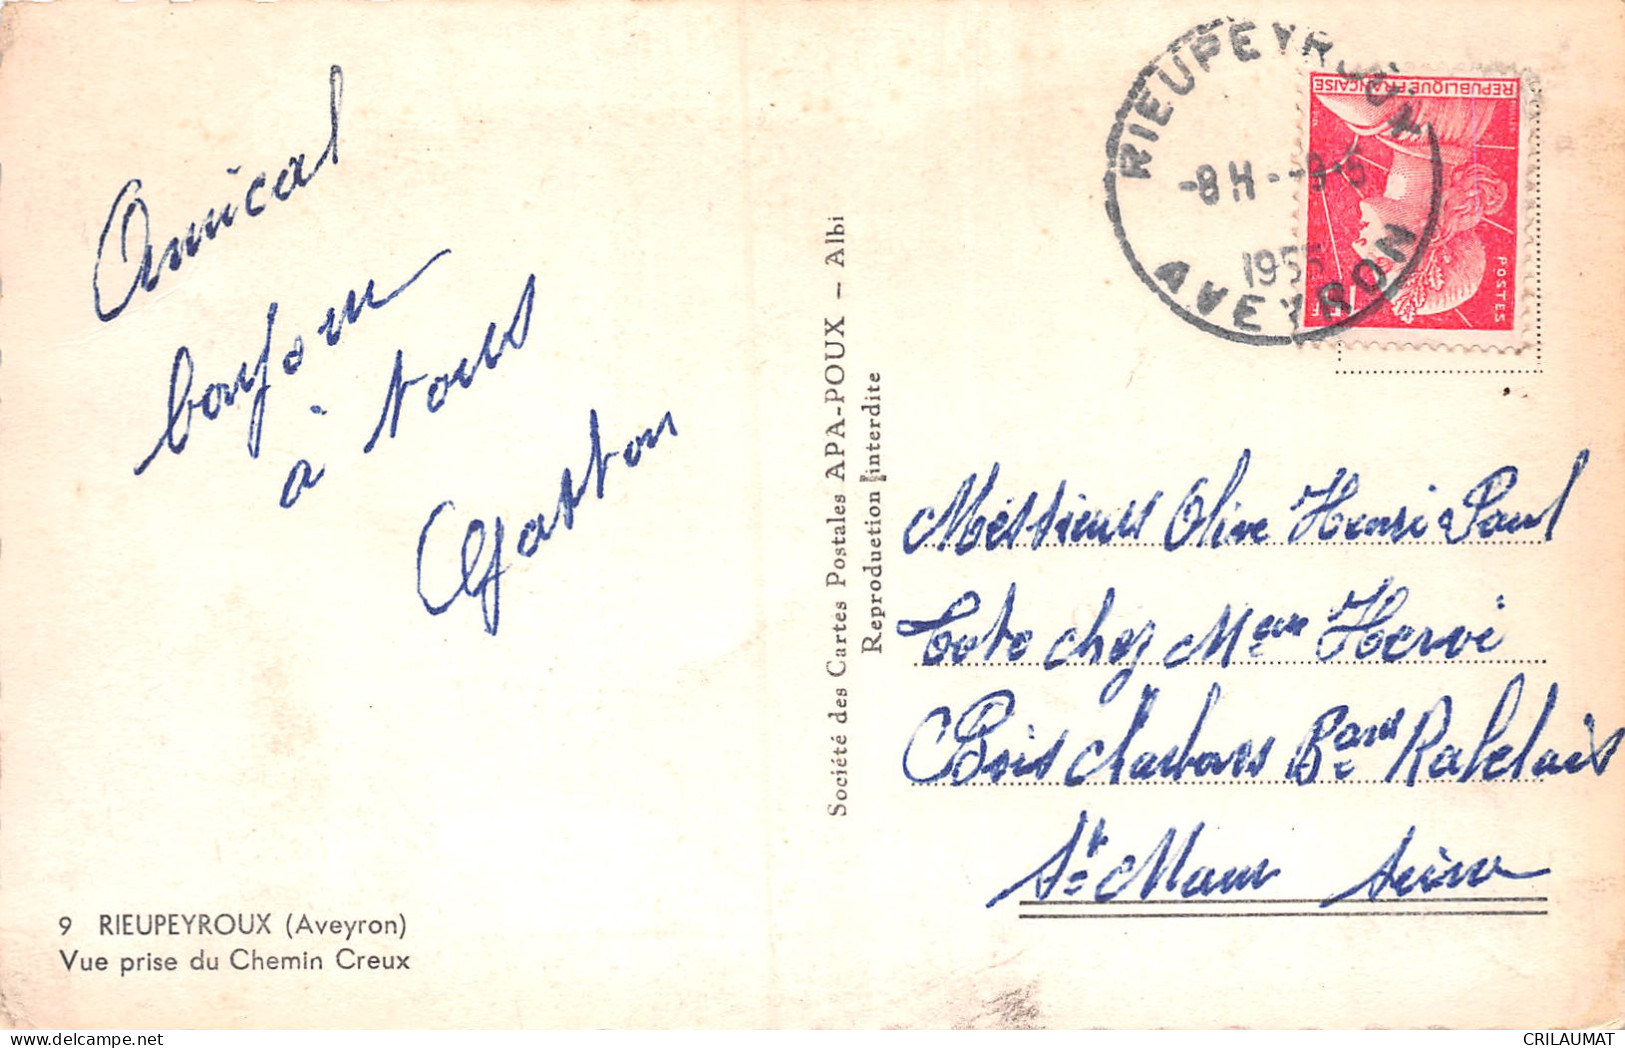 Amical
bonjour
à tous
Gaston
9 RIEUPEYROUX (Aveyron)
Vue prise du Chemin Creux
Société des Cartes Postales APA-POUX — Albi
Reproduction interdite
RIEUPEYROUX
-8H-
1955
AVEYRON
REPUBLIQUE FRANÇAISE
POSTES
15F
Messieurs Olive Henri Paul
chez Mme Hervé
Bois charbons Rabelais
St Maur Seine
CRILAUMAT